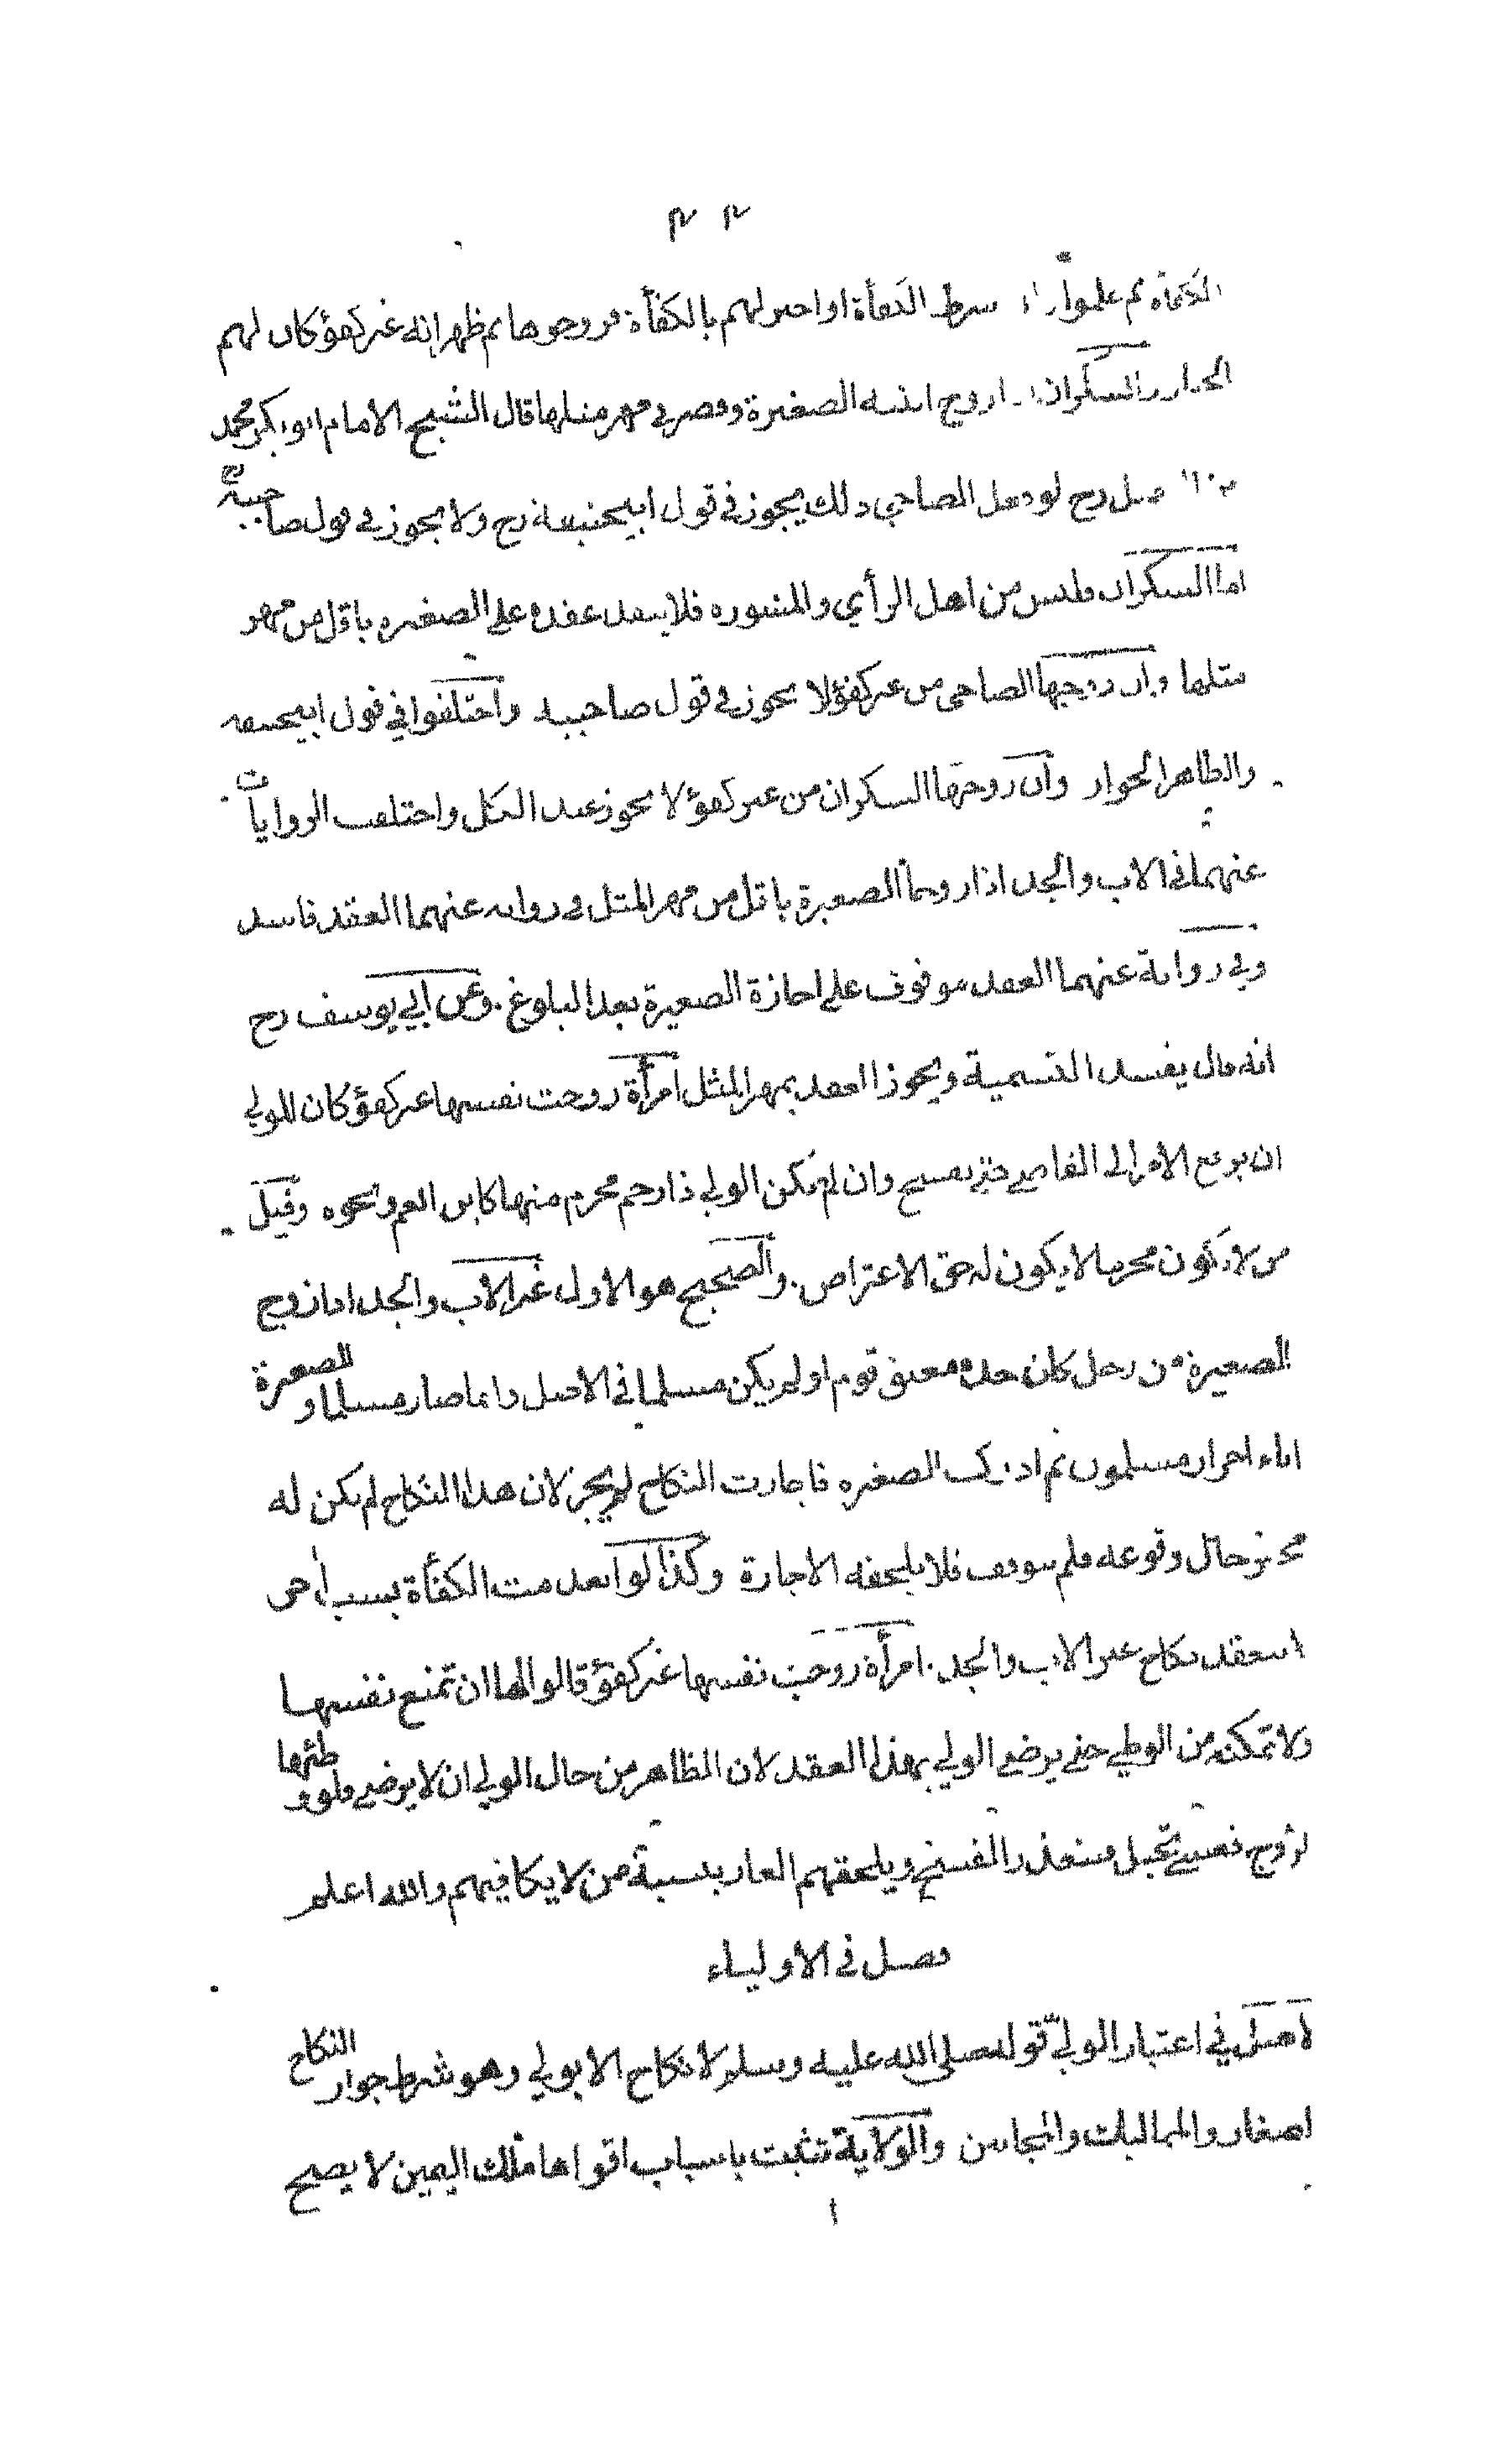 الكفاءة ثم علموا شرط الكفأة او اخبر لهم بالكفأة فزوجوها ثم ظهر انه غير كفؤ كان لهم
الخيار السكران اذا زوج ابنته الصغيرة وقصر في مهر مثلها قال الشيخ الامام ابو بكر محمد
بن الفضل رح لو فعل الصاحي ذلك يجوز في قول ابيحنيفة رح ولا يجوز في قول صاحبيه رح
اما السكران فليس من اهل الرأي والمشورة فلا ينفذ عقده على الصغيرة باقل من مهر
مثلها وان زوجها الصاحي من غير كفؤ لا يجوز في قول صاحبيه واختلفوا في قول ابيحنيفة
والظاهر الجواز وان زوجها السكران من غير كفؤ لا يجوز عند الكل واختلف الروايات
عنهما في الاب والجد اذا زوجا الصغيرة باقل من مهر المثل في رواية عنهما العقد فاسد
وفي رواية عنهما العقد موقوف على اجازة الصغيرة بعد البلوغ . وعن ابي يوسف رح
انه قال يفسد التسمية ويجوز العقد بمهر المثل امرأة زوجت نفسها غير كفؤ كان للولي
ان يرفع الامر الى القاضي حتى يفسخ وان لم يكن الولي ذا رحم محرم منها كابن العم ونحوه وقيل
من لا يكون محرما لا يكون له حق الاعتراض . والصحيح هو الاول غير الاب والجد اذا زوج
الصغيرة من رجل كان جده معتق قوم او لم يكن مسلما في الاصل وانما صار مسلما وللصغيرة
اباء احرار مسلمون ثم ادركت الصغيرة فاجازت النكاح لم يجز لان هذا النكاح لم يكن له
مجيز حال وقوعه فلم يتوقف فلا يلحقه الاجازة وكذا لو انعدمت الكفأة بسبب اخر
لا ينعقد نكاح غير الاب والجد . امرأة زوجت نفسها غير كفؤ قالوا لها ان تمنع نفسها
ولا تمكنه من الوطي حتى يرضى الولي بهذا العقد لان الظاهر من حال الولي ان لا يرضى فلو وطئها
الزوج فعسى تحبل فيتعذر الفسخ ويلحقهم العار بنسبة من لا يكافيهم والله اعلم
فصل في الاولياء
الاصل في اعتبار الولي قوله صلى الله عليه وسلم لا نكاح الا بولي وهو شرط جواز النكاح
الصغار والمماليك والمجانين والولاية تثبت باسباب اقواها ملك اليمين لا يصح